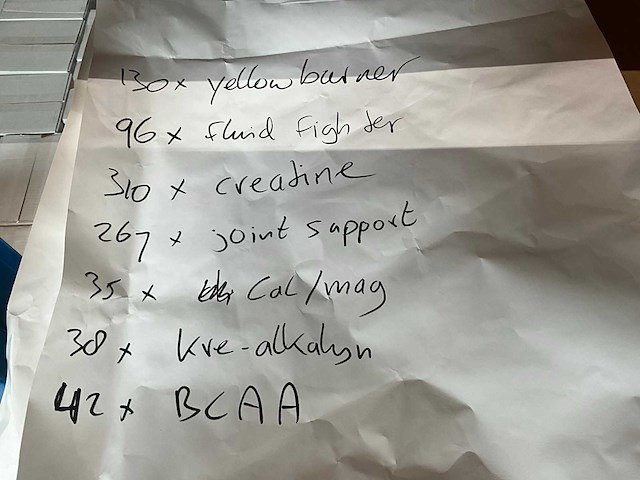 130 x yellow burner
96 x fluid fighter
310 x creatine
267 x joint support
35 x Cal/mag
30 x kre-alkalyn
42 x BCAA